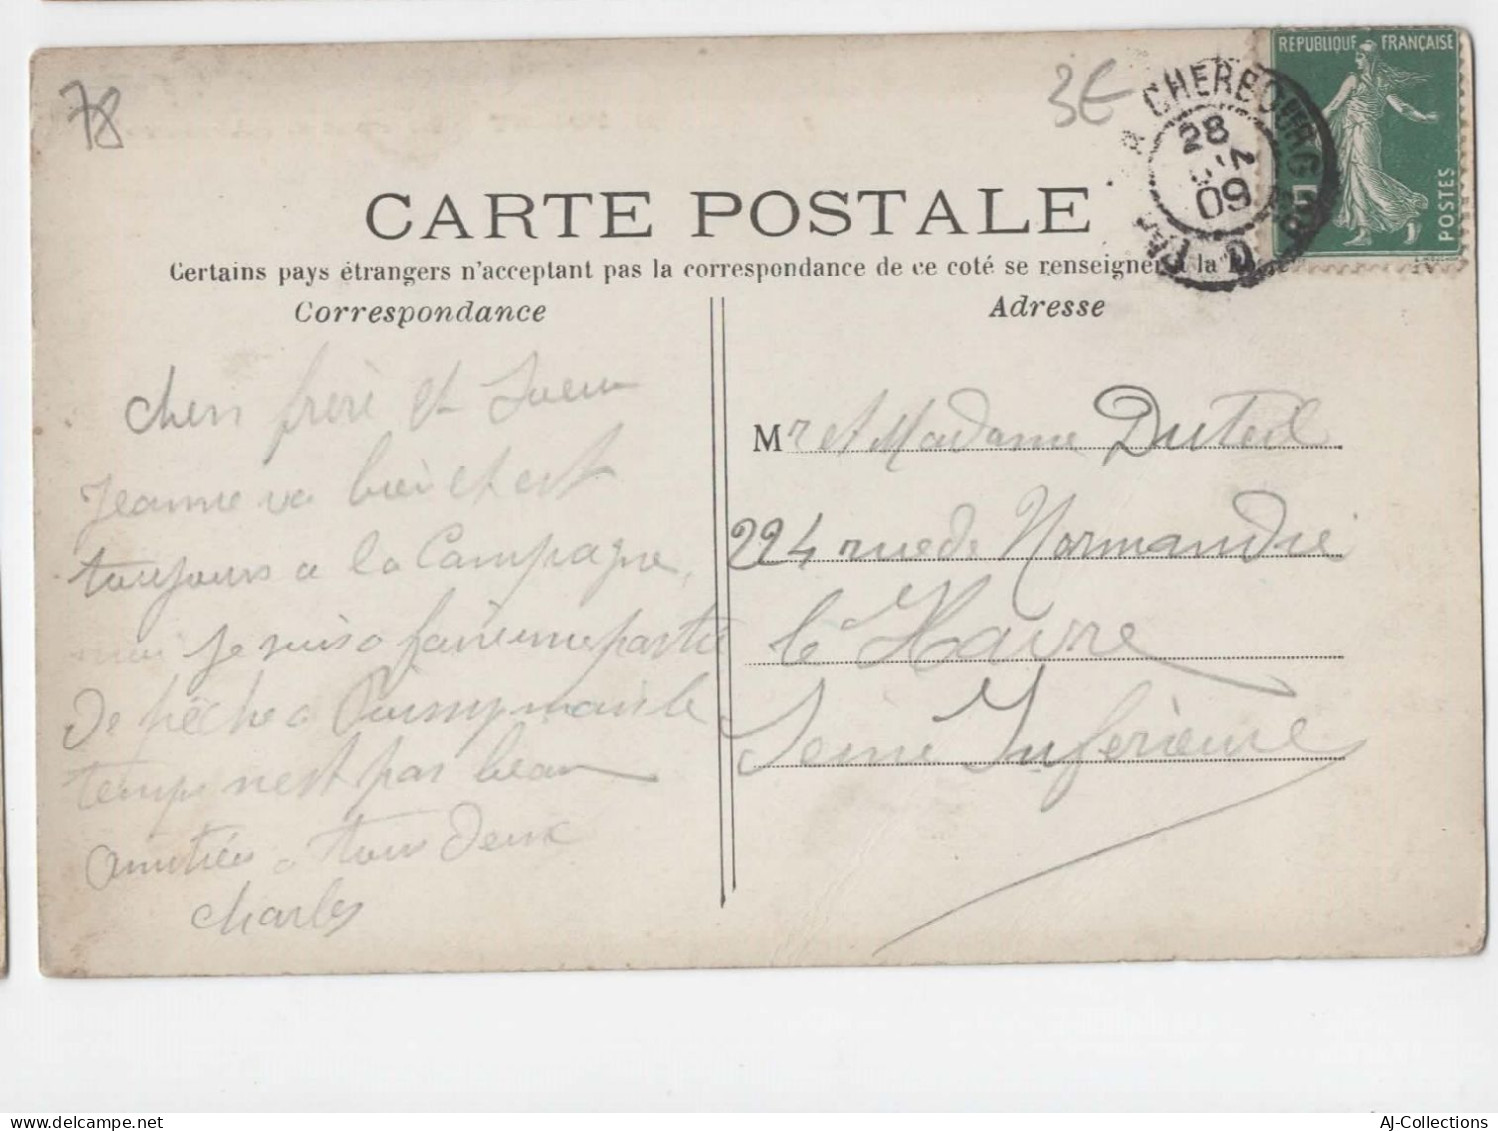 78
3€
REPUBLIQUE FRANÇAISE
POSTES
CHERBOURG
28
09
CARTE POSTALE
Certains pays étrangers n'acceptant pas la correspondance de ce coté se renseigner à la
Correspondance
Adresse
Cher frère et Sœur
Jeanne va bien et est
toujours a la Campagne,
moi je suis a faire une partie
De pêche a Poissy mais le
temps n'est pas beau
Amitiés a tous Deux
Charles
Mr et Madame Duteil
224 rue de Normandie
le Havre
Seine Inférieure
AJ-Collections